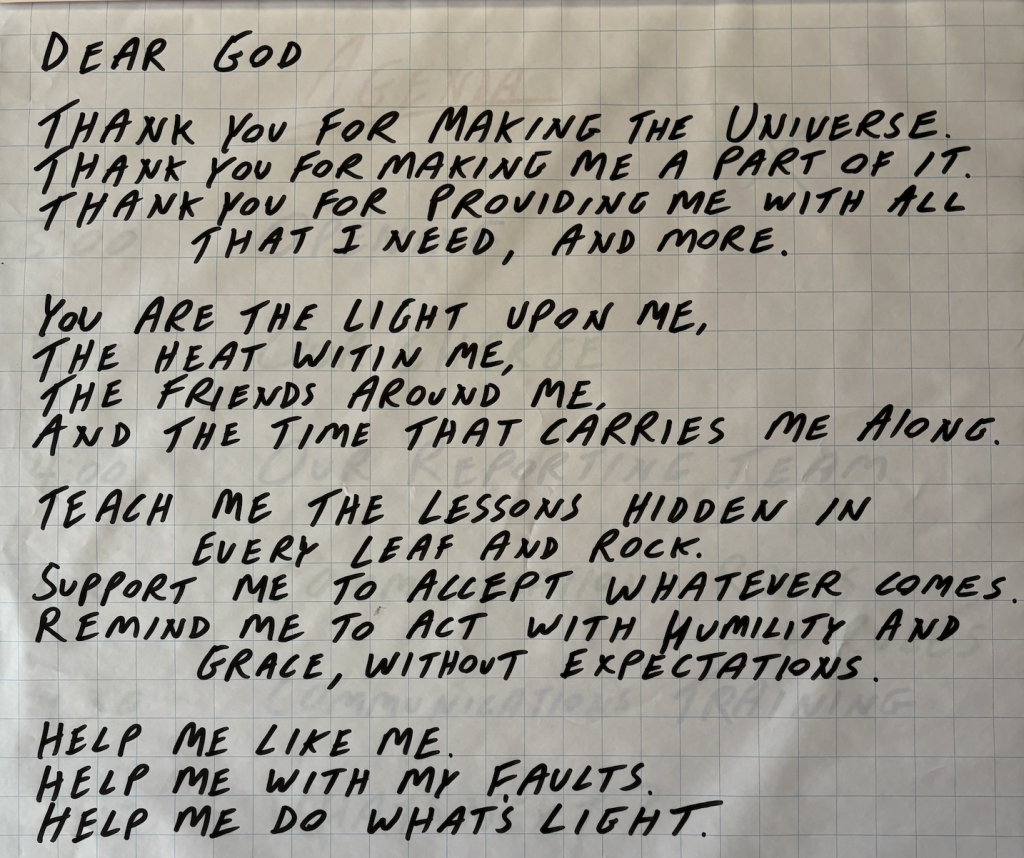 DEAR GOD
AGENDA
THANK YOU FOR MAKING THE UNIVERSE.
THANK YOU FOR MAKING ME A PART OF IT.
THANK YOU FOR PROVIDING ME WITH ALL
THAT I NEED, AND MORE.
YOU ARE THE LIGHT UPON ME,
THE HEAT WITIN ME,
THE FRIENDS AROUND ME,
AND THE TIME THAT CARRIES ME ALONG.
4:00 OUR REPORTING TEAM
TEACH ME THE LESSONS HIDDEN IN
EVERY LEAF AND ROCK.
SUPPORT ME TO ACCEPT WHATEVER COMES.
REMIND ME TO ACT WITH HUMILITY AND
GRACE, WITHOUT EXPECTATIONS.
COMMUNICATIONS TRAINING
HELP ME LIKE ME.
HELP ME WITH MY FAULTS.
HELP ME DO WHAT'S LIGHT.